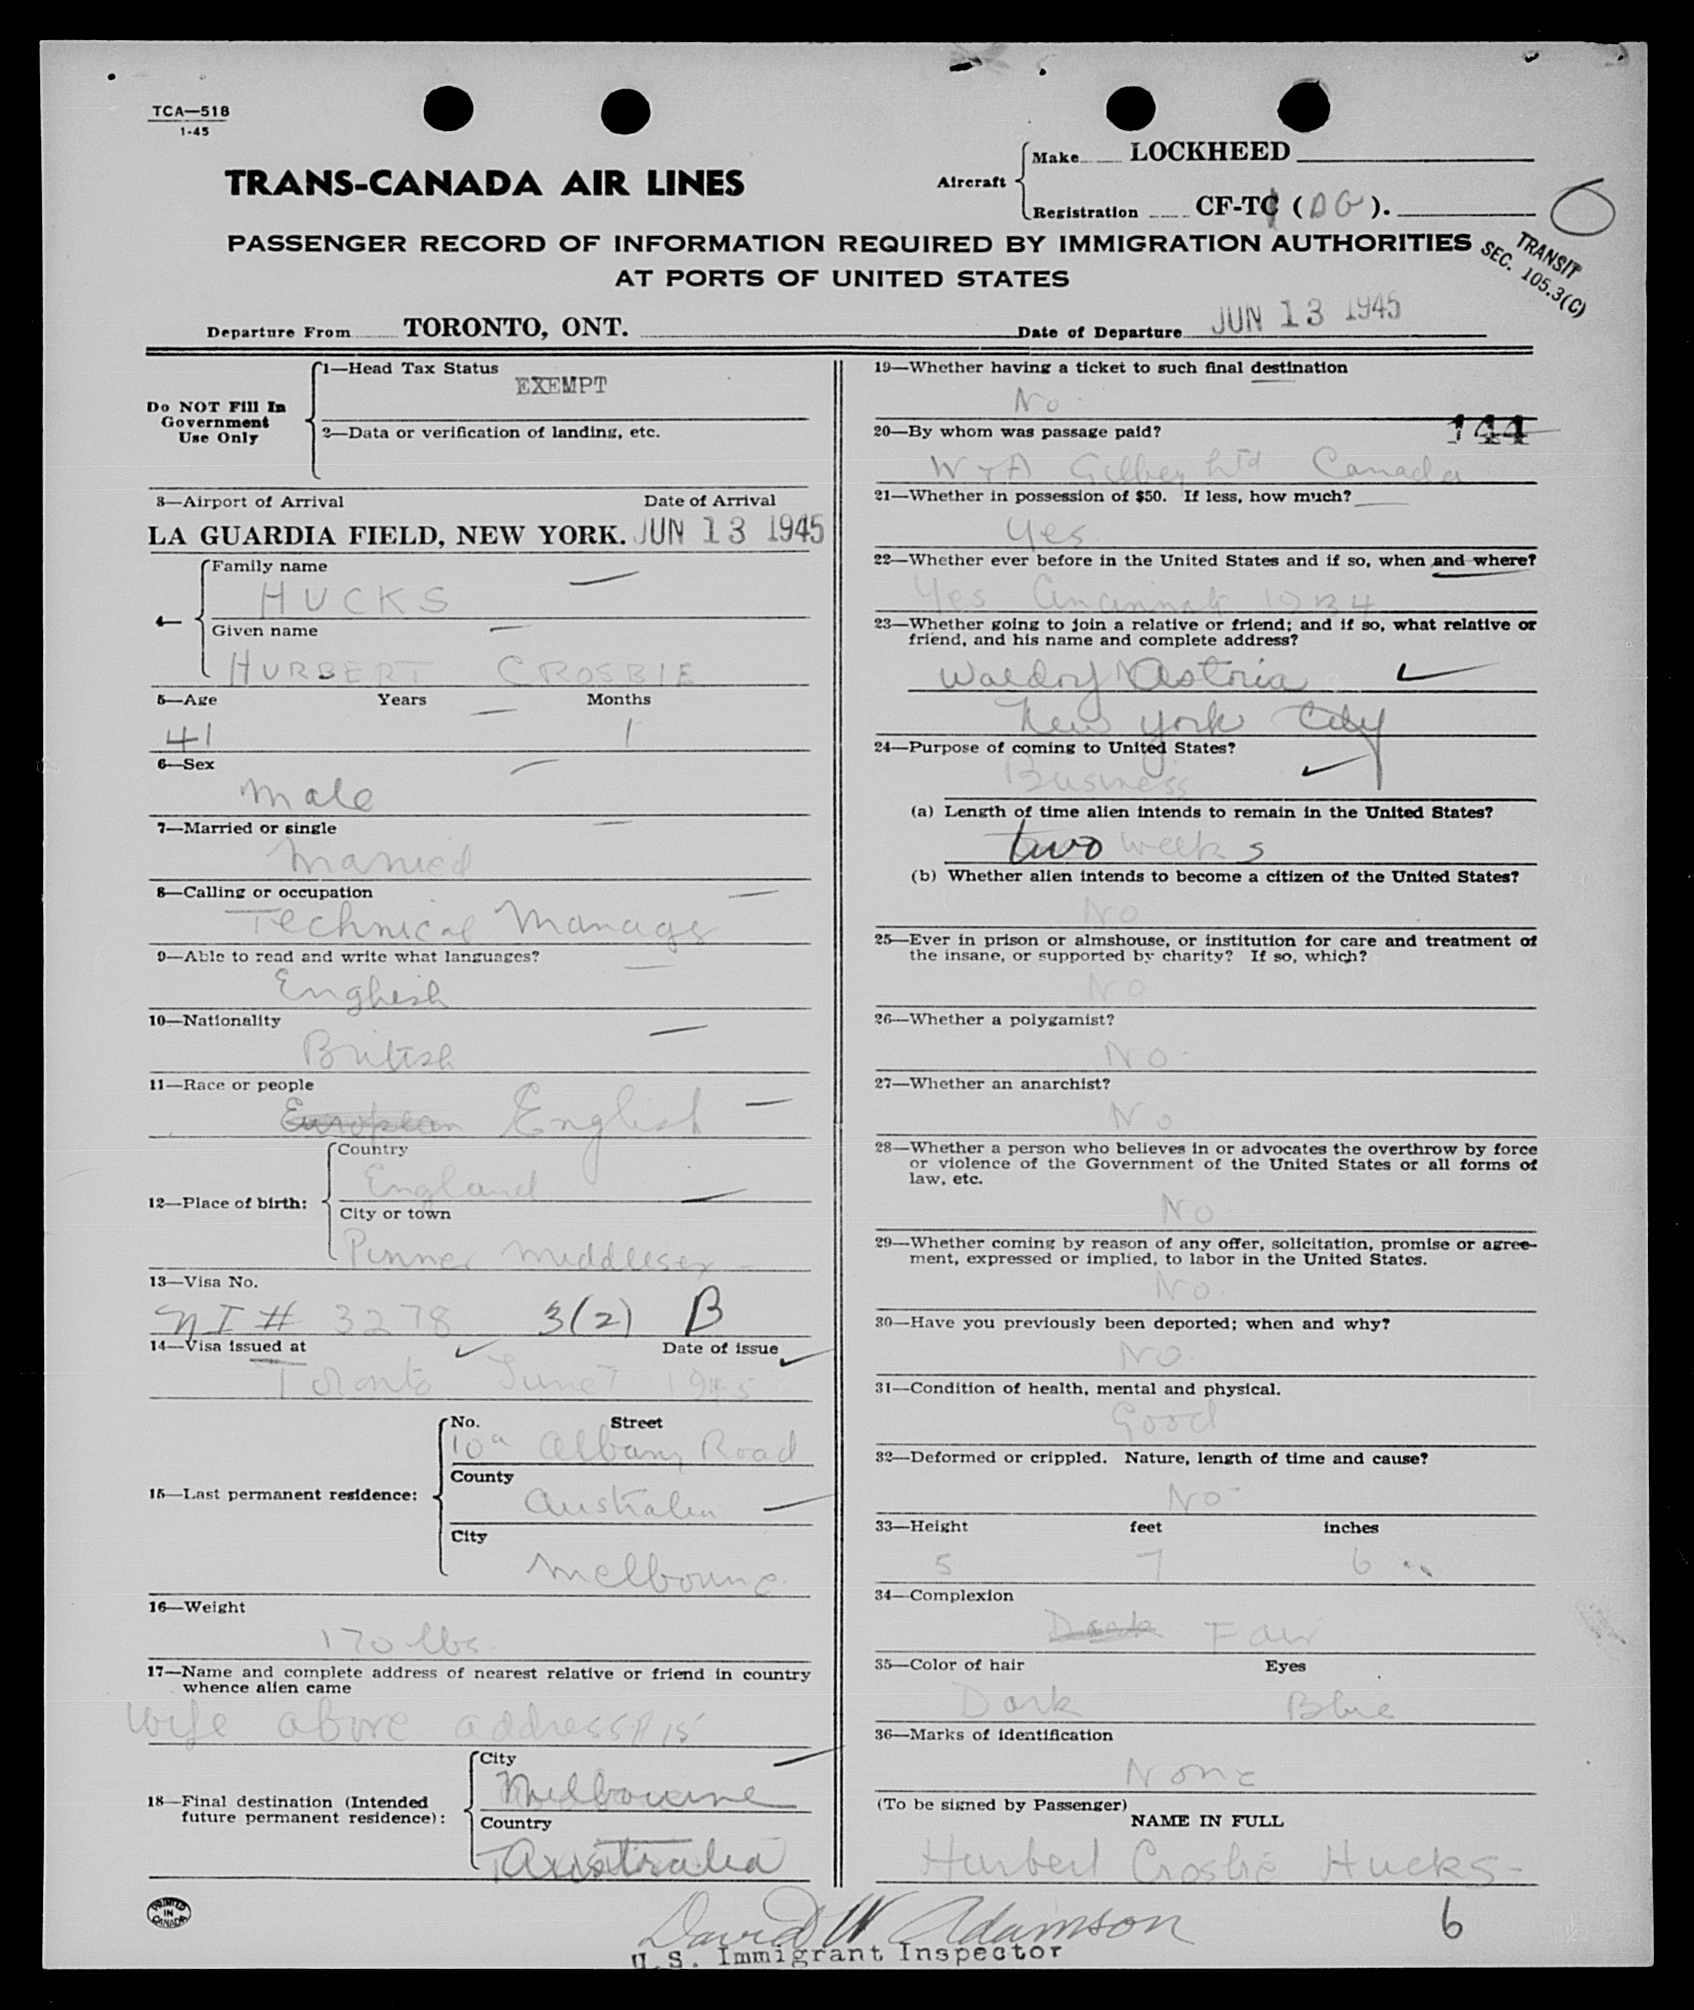 TCA—518
1-45
TRANS-CANADA AIR LINES
Aircraft
Make LOCKHEED
Registration CF-TC (DG).
PASSENGER RECORD OF INFORMATION REQUIRED BY IMMIGRATION AUTHORITIES
AT PORTS OF UNITED STATES
TRANSIT
SEC. 105.3(C)
Departure From TORONTO, ONT. Date of Departure JUN 13 1945
Do NOT Fill In
Government
Use Only
1—Head Tax Status
EXEMPT
2—Data or verification of landing, etc.
3—Airport of Arrival Date of Arrival
LA GUARDIA FIELD, NEW YORK. JUN 13 1945
4—
Family name
HUCKS
Given name
HURBERT CROSBIE
5—Age Years Months
41 1
6—Sex
Male
7—Married or single
Married
8—Calling or occupation
Technical Manager
9—Able to read and write what languages?
English
10—Nationality
British
11—Race or people
European English
12—Place of birth:
Country
England
City or town
Pinner Middlesex
13—Visa No.
NI # 3278 3(2) B
14—Visa issued at Date of issue
Toronto June 7 1945
15—Last permanent residence:
No. Street
10a Albany Road
County
Australia
City
Melbourne
16—Weight
170 lbs.
17—Name and complete address of nearest relative or friend in country
whence alien came
Wife above address 15
18—Final destination (Intended
future permanent residence):
City
Melbourne
Country
Australia
PRINTED
IN
CANADA
19—Whether having a ticket to such final destination
No.
20—By whom was passage paid?
144
W & A Gilbey Ltd Canada
21—Whether in possession of $50. If less, how much?
Yes
22—Whether ever before in the United States and if so, when and where?
Yes Cincinnati 1934
23—Whether going to join a relative or friend; and if so, what relative or
friend, and his name and complete address?
Waldorf Astoria
New York City
24—Purpose of coming to United States?
Business
(a) Length of time alien intends to remain in the United States?
two weeks
(b) Whether alien intends to become a citizen of the United States?
No
25—Ever in prison or almshouse, or institution for care and treatment of
the insane, or supported by charity? If so, which?
No
26—Whether a polygamist?
No.
27—Whether an anarchist?
No
28—Whether a person who believes in or advocates the overthrow by force
or violence of the Government of the United States or all forms of
law, etc.
No
29—Whether coming by reason of any offer, solicitation, promise or agree-
ment, expressed or implied, to labor in the United States.
No.
30—Have you previously been deported; when and why?
No.
31—Condition of health, mental and physical.
Good
32—Deformed or crippled. Nature, length of time and cause?
No
33—Height feet inches
5 7 6
34—Complexion
Dark Fair
35—Color of hair Eyes
Dark Blue
36—Marks of identification
None
(To be signed by Passenger)
NAME IN FULL
Hurbert Crosbie Hucks
6
David W Adamson
U.S. Immigrant Inspector